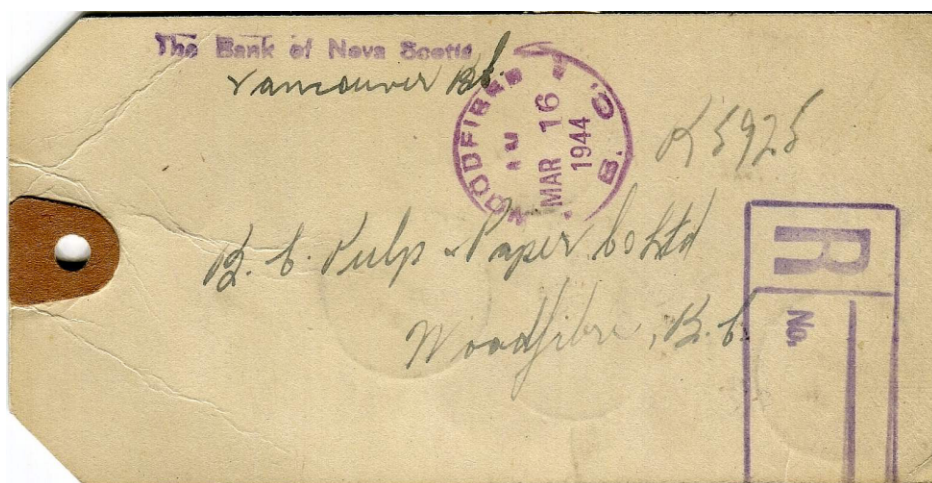 The Bank of Nova Scotia
Vancouver B.C.
WOODFIBRE
B.C.
AM
MAR 16
1944
K5925
B. C. Pulp & Paper Co Ltd
Woodfibre, B.C.
R
No.